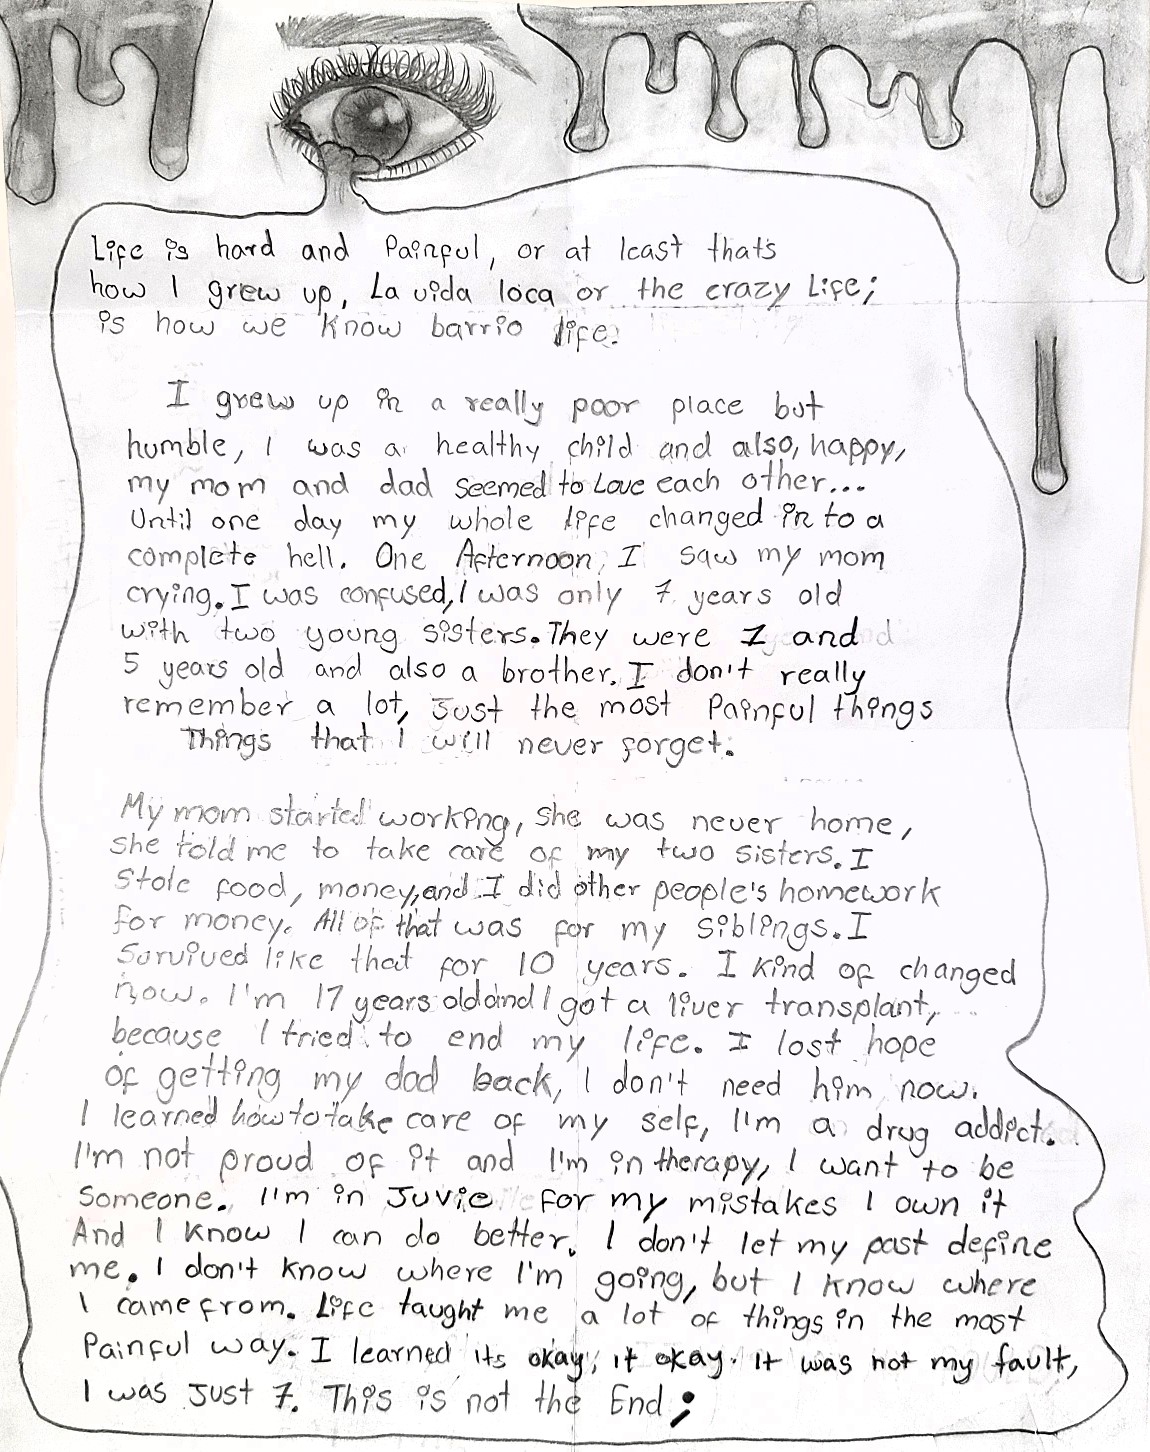 Life is hard and Painful, or at least that's
how I grew up, La vida loca or the crazy Life;
is how we know barrio life.
I grew up in a really poor place but
humble, I was a healthy child and also, happy,
my mom and dad seemed to Love each other...
Until one day my whole life changed in to a
complete hell. One Afternoon, I saw my mom
crying. I was confused, I was only 7 years old
with two young sisters. They were 1 and
5 years old and also a brother. I don't really
remember a lot, Just the most Painful things
Things that I will never forget.
My mom started working, she was never home,
she told me to take care of my two sisters. I
Stole food, money, and I did other people's homework
for money. All of that was for my siblings. I
Survived like that for 10 years. I kind of changed
now. I'm 17 years old and I got a liver transplant,
because I tried to end my life. I lost hope
of getting my dad back, I don't need him now.
I learned how to take care of my self, I'm a drug addict.
I'm not proud of it and I'm in therapy, I want to be
Someone. I'm in Juvie for my mistakes I own it
And I know I can do better. I don't let my past define
me. I don't know where I'm going, but I know where
I came from. Life taught me a lot of things in the most
Painful way. I learned its okay, it okay. It was not my fault,
I was Just 7. This is not the End;